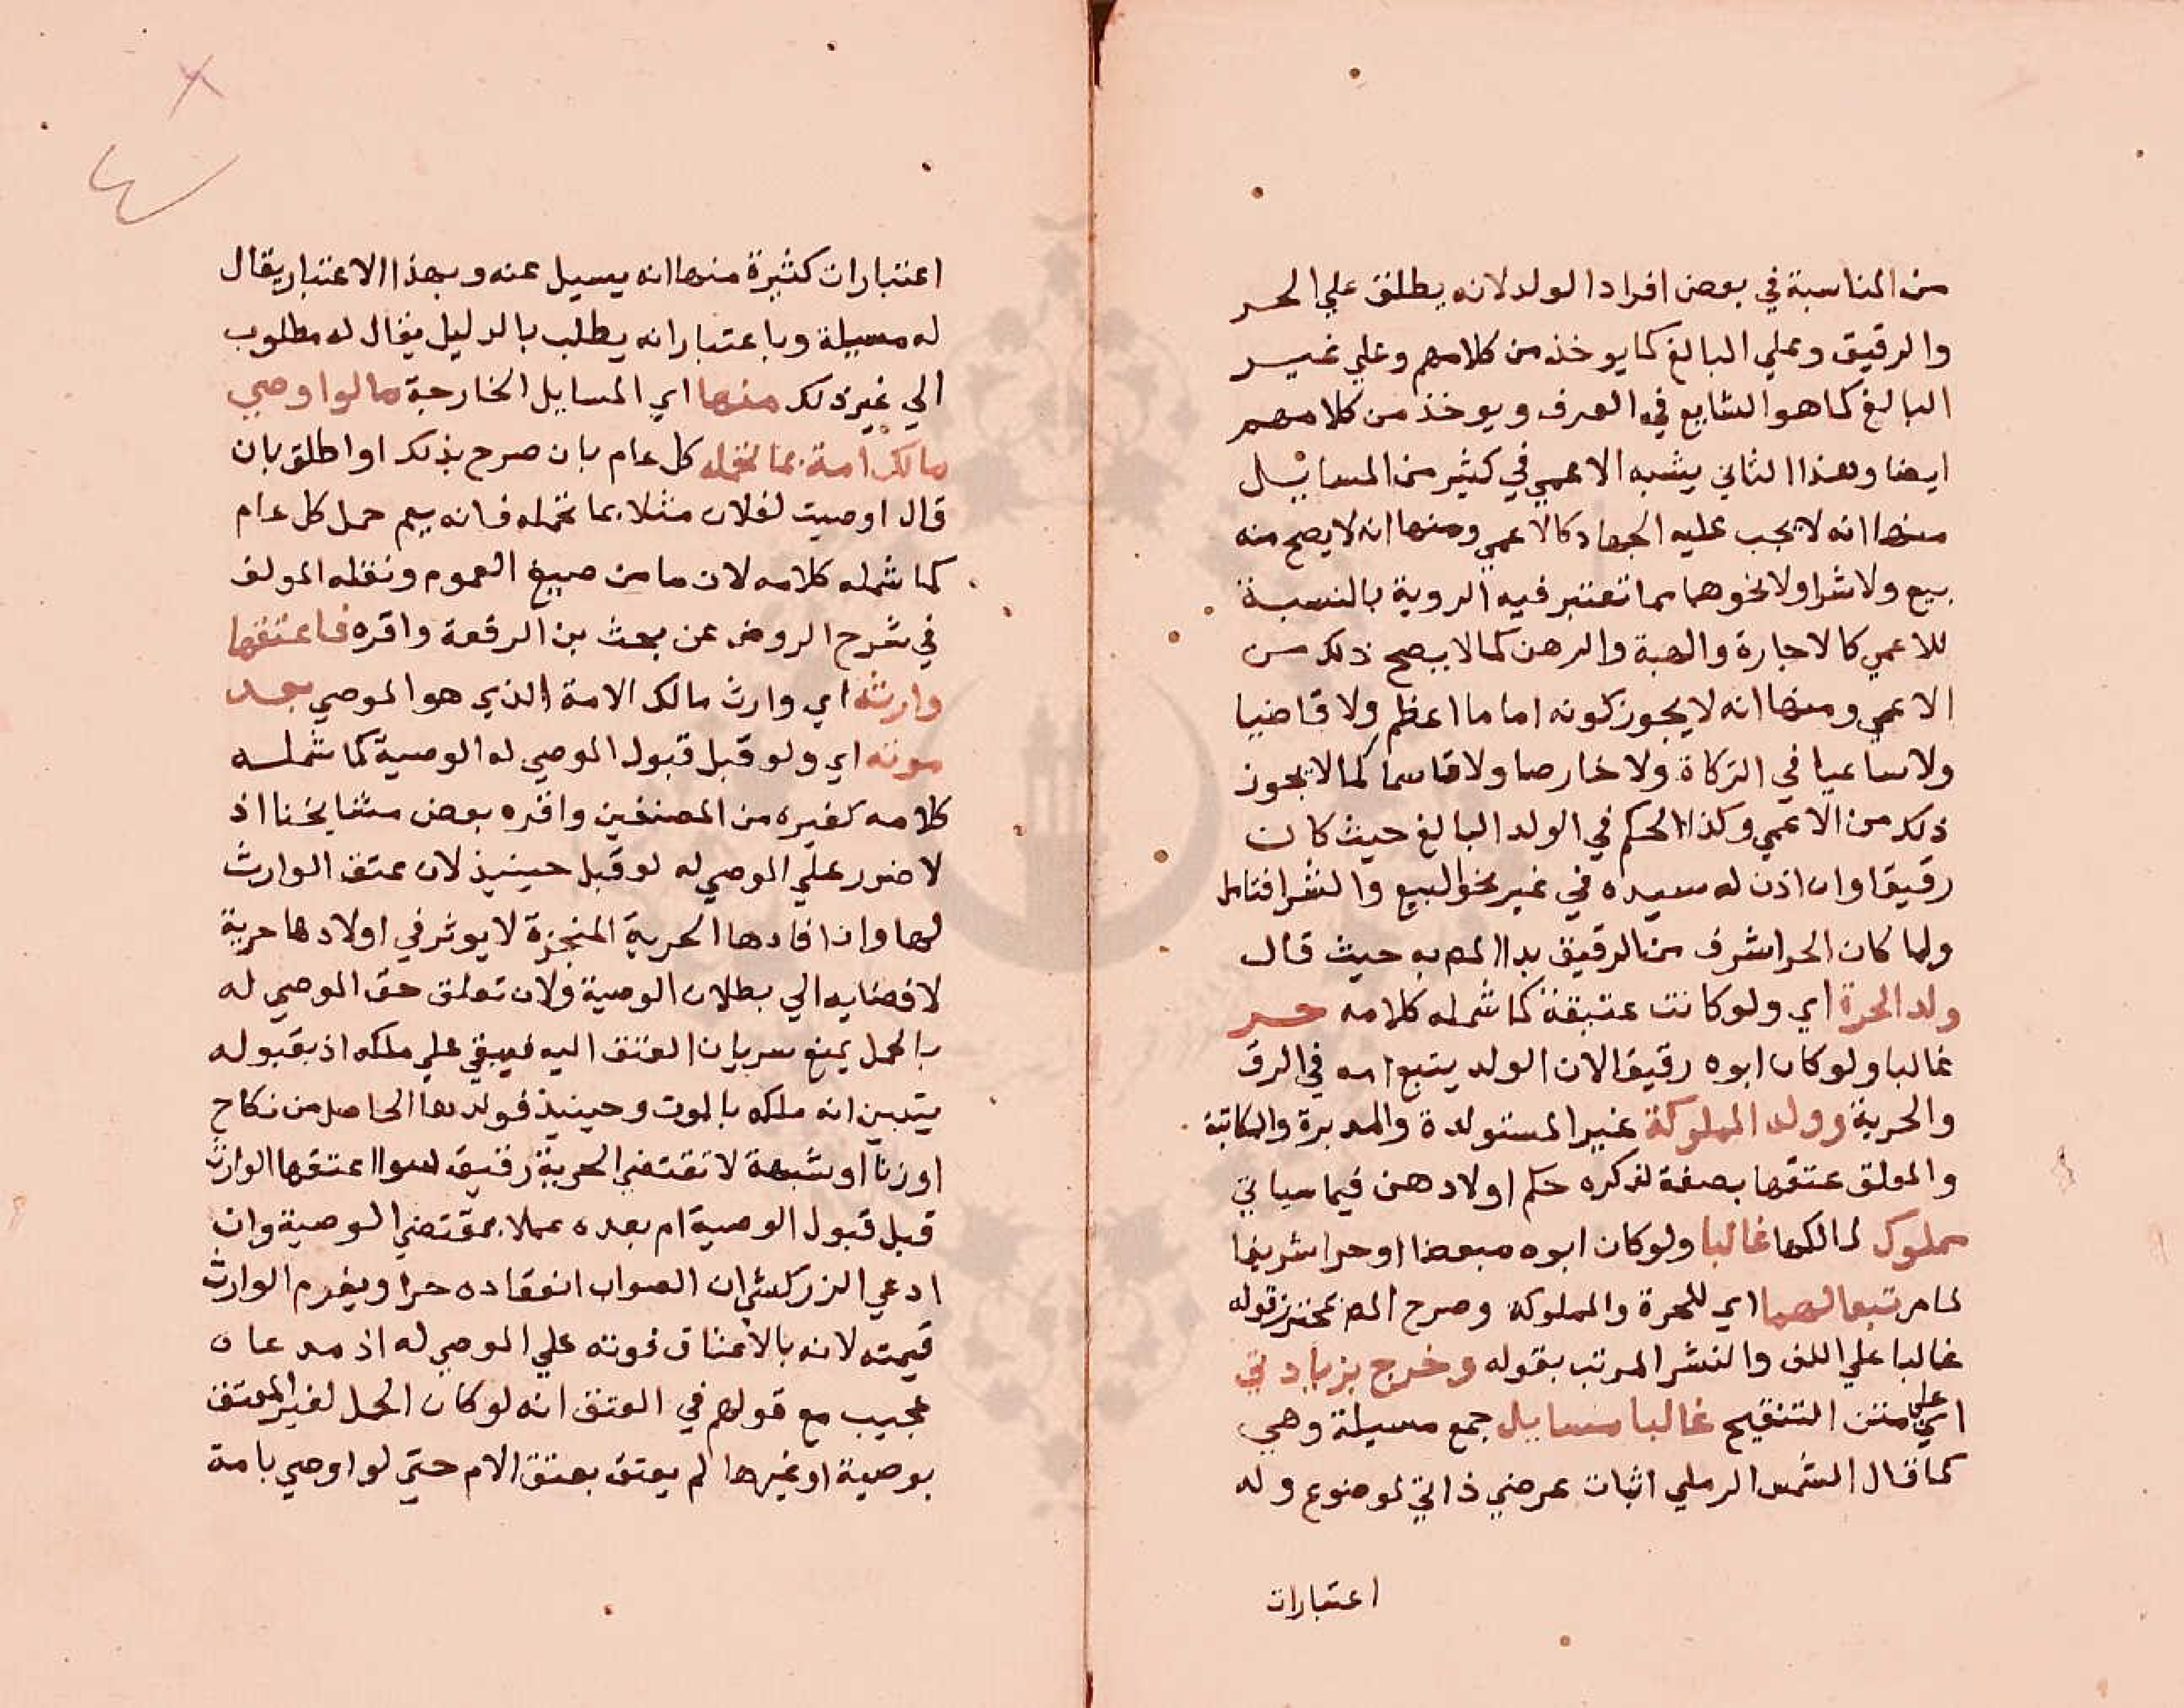 من المناسبة في بعض افراد الولد لانه يطلق علي الحر
والرقيق وعلي البالغ كما يوخذ من كلامهم وعلي غير
البالغ كما هو الشايع في العرف ويوخذ من كلامهم
ايضا وهذا الثاني يشبه الاعمي في كثير من المسايل
منها انه لا يجب عليه الجهاد كالاعمي ومنها انه لا يصح منه
بيع ولا شرا ولا نحوهما مما تعتبر فيه الروية بالنسبة
للاعمي كالاجارة والهبة والرهن كما لا يصح ذلك من
الاعمي ومنها انه لا يجوز كونه اماما اعظم ولا قاضيا
ولا ساعيا في الزكاة ولا خارصا ولا قاسما كما لا يجوز
ذلك من الاعمي وكذا الحكم في الولد البالغ حيث كان
رقيقا وان اذن له سيده في غير نحو البيع والشرا فتامل
ولما كان الحر اشرف من الرقيق بدا المص به حيث قال
ولد الحرة اي ولو كانت عتيقة كما شمله كلامه حر
غالبا ولو كان ابوه رقيقا لان الولد يتبع امه في الرق
والحرية وولد المملوكة غير المستولدة والمدبرة والمكاتبة
والمعلق عتقها بصفة لذكره حكم اولادهن فيما سياتي
مملوك لمالكها غالبا ولو كان ابوه مبعضا او حرا شريفا
لما مر تبعا لهما اي للحرة والمملوكة وصرح المص بمحترز قوله
غالبا علي اللف والنشر المرتب بقوله وخرج بزيادتي
اي علي متن التنقيح غالبا مسايل جمع مسيلة وهي
كما قال الشمس الرملي اثبات عرضي ذاتي لموضوع وله
اعتبارات
اعتبارات كثيرة منها انه يسيل عنه وبهذا الاعتبار يقال
له مسيلة وباعتبار انه يطلب بالدليل يقال له مطلوب
الي غير ذلك منها اي المسايل الخارجة ما لو اوصي
مالك امة بما تحمله كل عام بان صرح بذلك او اطلق بان
قال اوصيت لفلان مثلا بما تحمله فانه يعم حمل كل عام
كما شمله كلامه لان ما من صيغ العموم ونقله المولف
في شرح الروض عن بحث بن الرفعة واقره فاعتقها
وارثه اي وارث مالك الامة الذي هو الموصي بعد
موته اي ولو قبل قبول الموصي له الوصية كما شمله
كلامه كغيره من المصنفين واقره بعض مشايخنا اذ
لا ضرر علي الموصي له لو قبل حينيذ لان عتق الوارث
لها وان افادها الحرية المنجزة لا يوثر في اولادها حرية
لافضايه الي بطلان الوصية ولان تعلق حق الموصي له
بالحمل يمنع سريان العتق اليه فيبقي علي ملكه اذ بقبوله
يتبين انه ملكه بالموت وحينيذ فولدها الحاصل من نكاح
او زنا او شبهة لا تقتضي الحرية رقيق سوا اعتقها الوارث
قبل قبول الوصية ام بعده عملا بمقتضي الوصية وان
ادعي الزركشي ان الصواب انعقاده حرا ويغرم الوارث
قيمته لانه بالاعتاق فوته علي الموصي له اذ مدعاه
عجيب مع قولهم في العتق انه لو كان الحمل لغير المعتق
بوصية او غيرها لم يعتق بعتق الام حتي لو اوصي بامة